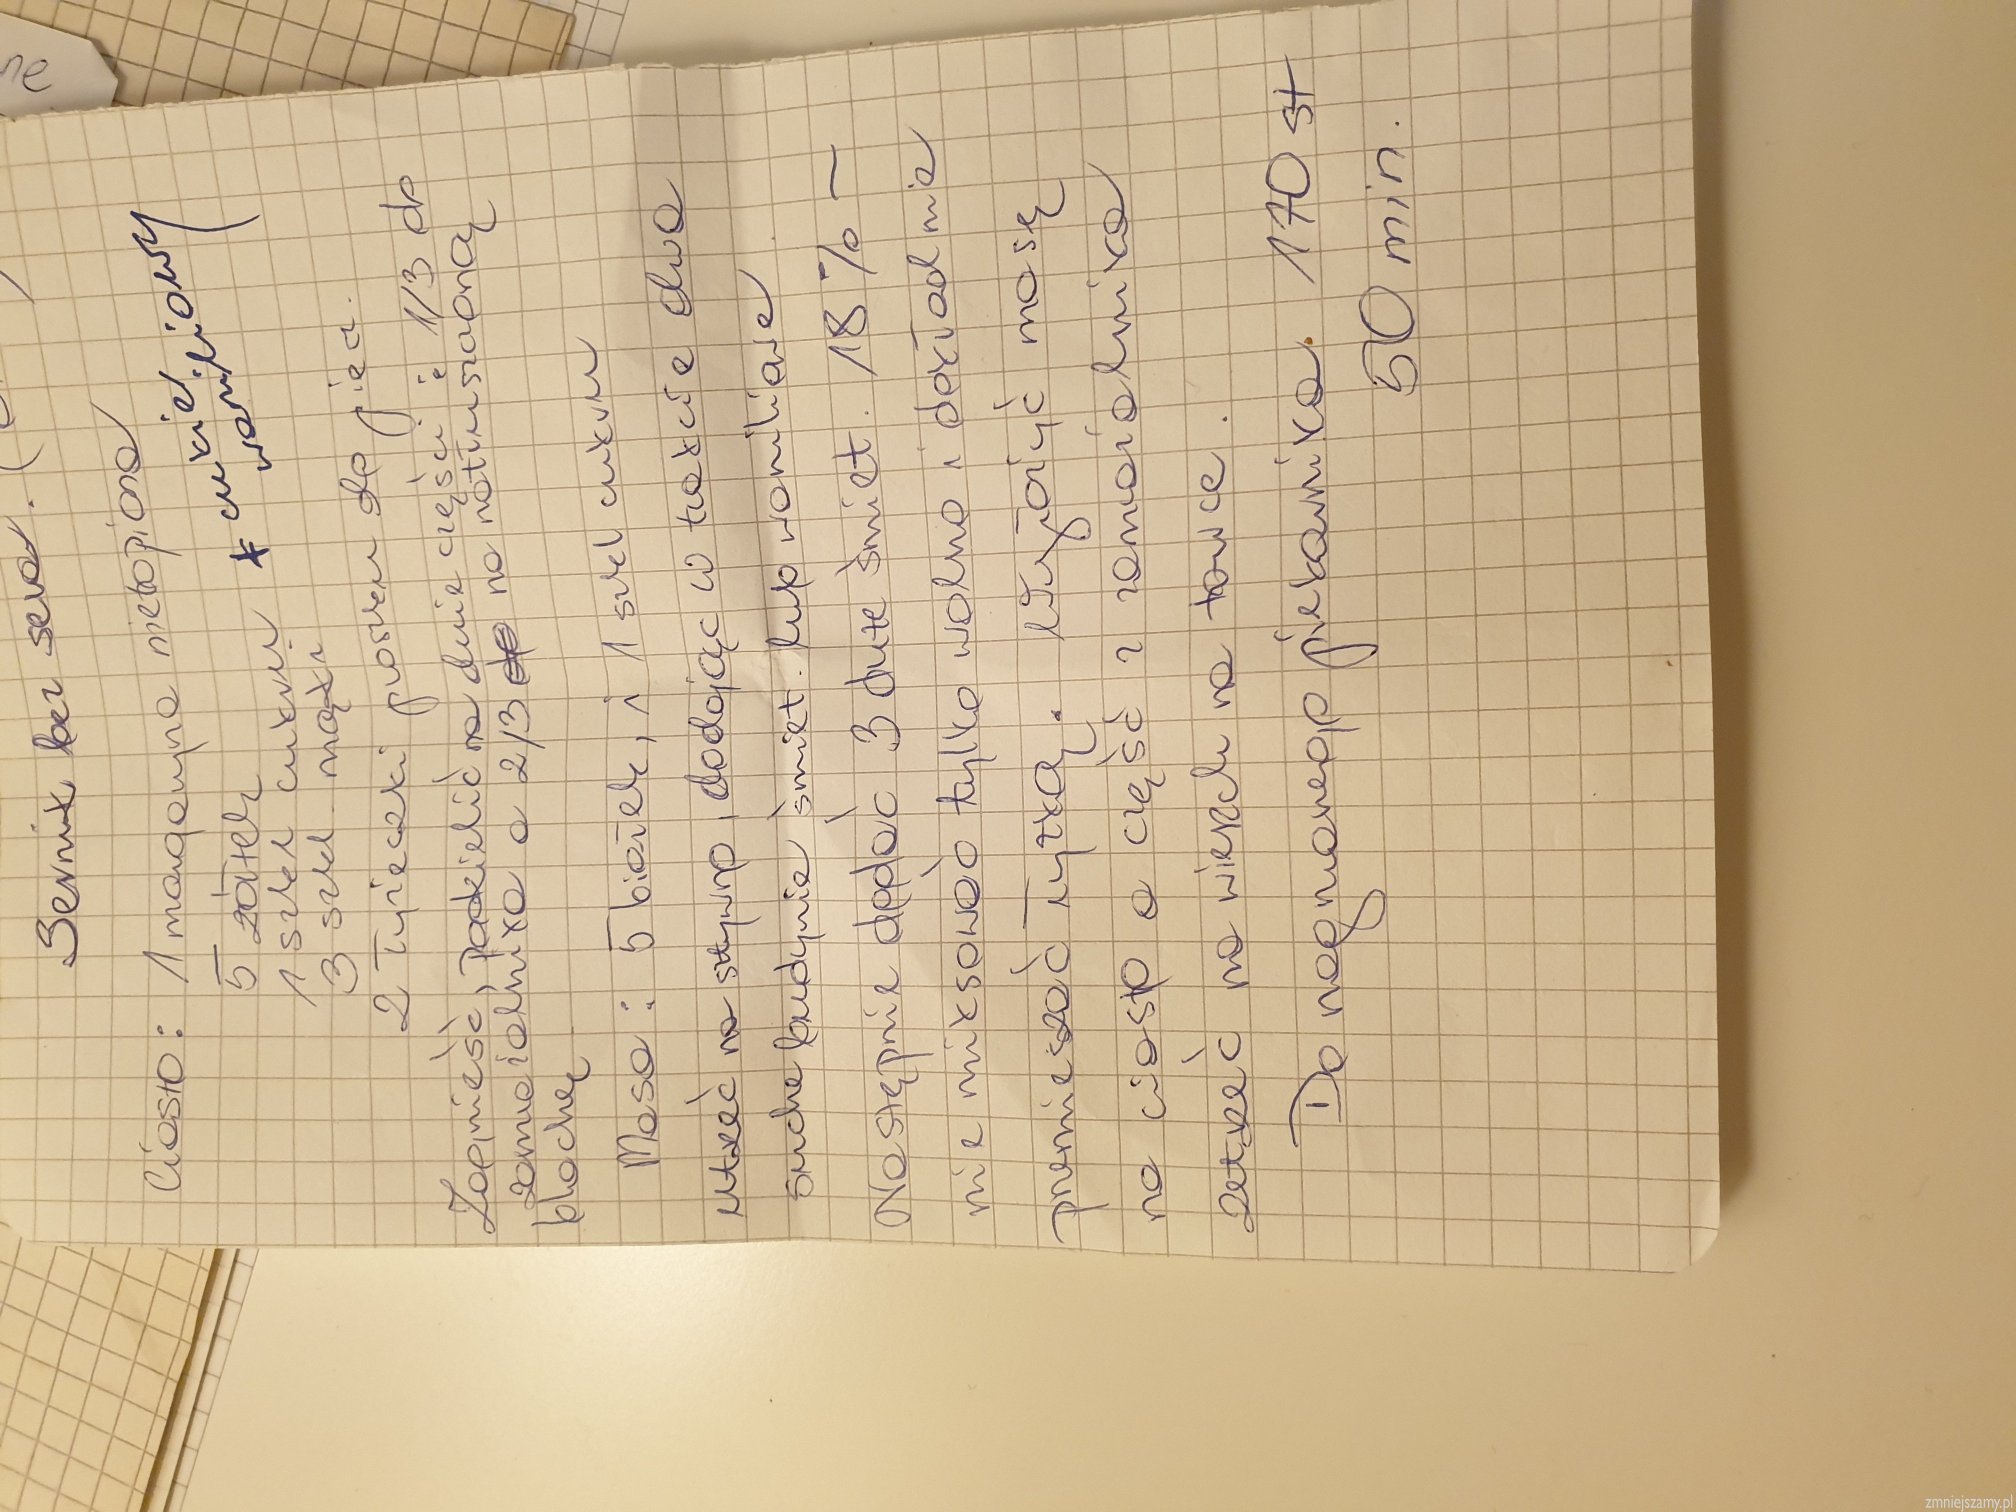 Sernik bez sera.
Ciasto: 1 margaryna nietopiona
5 żółtek
1 szkl cukru * cukier waniliowy
3 szkl. mąki
2 łyżeczki proszku do piecz.
Zagnieść, podzielić na dwie części i 1/3 do
zamrażalnika a 2/3 na natłuszczoną
blachę
Masa: 5 białek, i 1 szkl cukru
utrzeć na sztywno, dodając w trakcie dwa
suche budynie śmiet. lub waniliowe
Następnie dodać 3 duże śmiet. 18% –
nie miksować tylko wolno i dokładnie
przemieszać łyżką. Wyłożyć masę
na ciasto a część z zamrażalnika
zetrzeć na wierzch na tarce.
Do nagrzanego piekarnika. 170 st
50 min.
ne
zmniejszamy.pl